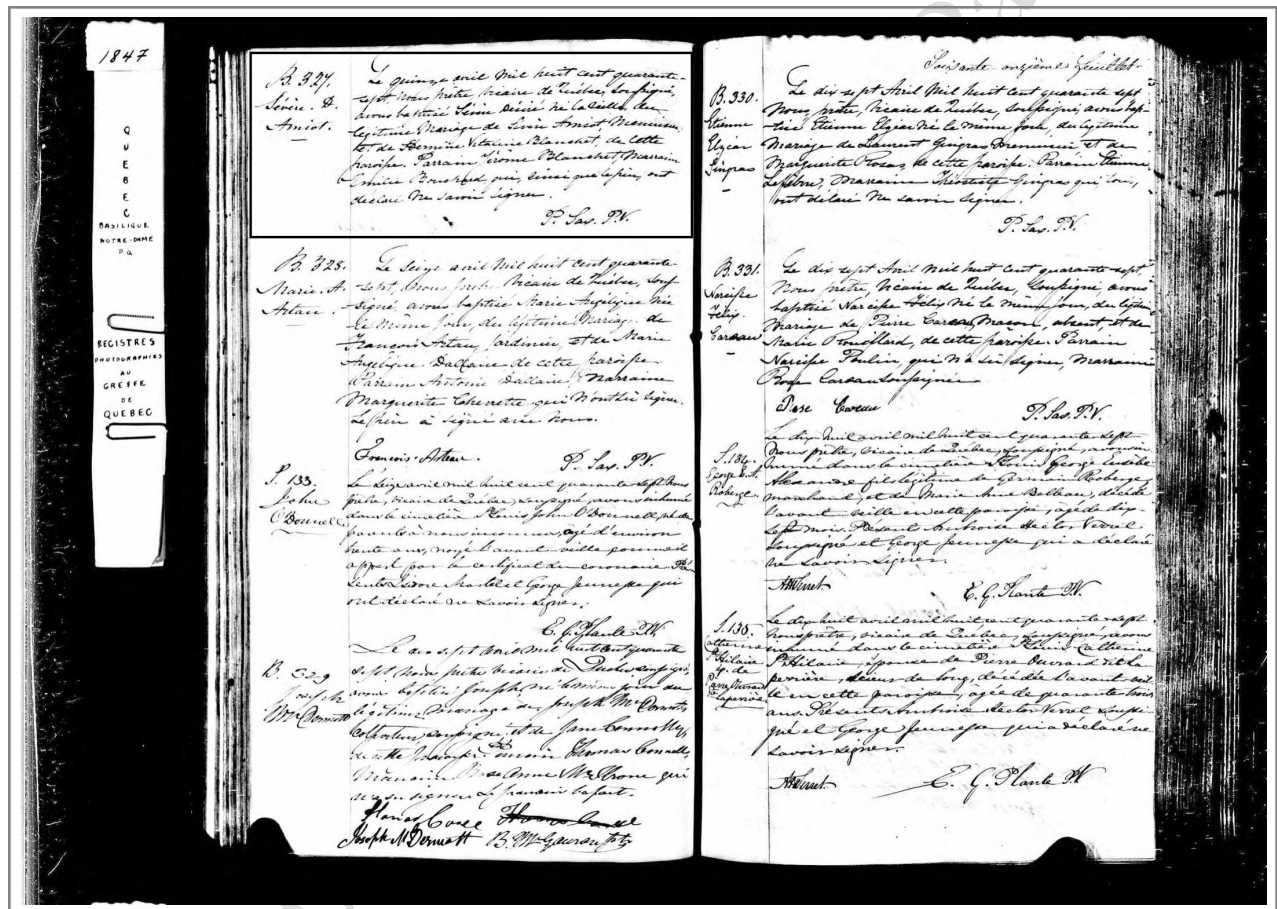 1847
QUEBEC
BASILIQUE
NOTRE-DAME
PQ
REGISTRES
PHOTOGRAPHIES
AU
GREFFE
DE
QUEBEC
B. 327.
Sévère. D.
Amiot.
Le quinze avril mil huit cent quarante-
sept, nous prêtre, vicaire de Québec, soussigné,
avons baptisé Sévère Désiré né la veille, du
légitime mariage de Sévère Amiot Menuisier,
et de Herminie Vitaline Blanchet, de cette
paroisse. Parrain Jérome Blanchet, Marraine
Emilie Bouchard qui, ainsi que le père, ont
déclaré ne savoir signer.
P. Sax. P.V.
B. 328.
Marie. A.
Arteau.
Le seize avril mil huit cent quarante
sept, nous prêtre, vicaire de Québec, sous
signé, avons baptisé Marie Angélique née
le même jour, du légitime mariage de
François Arteau, Jardinier, et de Marie
Angélique Dallaire de cette paroisse.
Parrain Antoine Dallaire, Marraine
Marguerite Chevrette qui n'ont su signer.
Le père a signé avec nous.
François Arteau. P. Sax. P.V.
S. 133.
John
O'Donnell
Le seize avril mil huit cent quarante sept nous
prêtre, vicaire de Québec, soussigné, avons inhumé
dans le cimetière St Louis John O'Donnell, né de
parents à nous inconnus, âgé d'environ
trente ans, noyé l'avant-veille comme il
appert par le certificat du coronaire. Pré
sents Isidore Martel et George Jeunesse qui
ont déclaré ne savoir signer.
E. G. Plante P.V.
B. 329
Joseph
McDermott
Le dix sept avril mil huit cent quarante
sept nous prêtre vicaire de Québec soussigné,
avons baptisé Joseph né le même jour du
légitime mariage de Joseph McDermott,
colporteur, soussigné, et de Jane Connolly,
de cette paroisse. Parrain Thomas Connell,
Marraine Rose Anne McKrone qui
n'a su signer. Le parrain
Joseph McDermott B. McGauran Ptr
Soixante onzième feuillet
B. 330.
Etienne
Elzéar
Gingras
Le dix sept Avril mil huit cent quarante sept
nous, prêtre, vicaire de Québec, soussigné, avons bap-
tisé Etienne Elzéar né le même jour, du légitime
mariage de Laurent Gingras menuisier et de
Marguerite Rosas, de cette paroisse. Parrain Etienne
Lefebvre, Marraine Théotiste Gingras qui tous,
ont déclaré ne savoir signer.
P. Sax. P.V.
B. 331.
Narcisse
Félix.
Careau
Le dix sept Avril mil huit cent quarante sept,
nous prêtre, vicaire de Québec, soussigné, avons
baptisé Narcisse Félix né le même jour, du légitime
mariage de Pierre Careau, Maçon, absent, et de
Marie Rouillard, de cette paroisse. Parrain
Narcisse Poulin, qui n'a su signer, Marraine
Rose Careau soussignée
Rose Careau P. Sax. P.V.
S. 134.
George E. A.
Roberge
Le dix huit avril mil huit cent quarante sept
nous prêtre, vicaire de Québec, soussigné, avons in
humé dans le cimetière St Louis George Eusèbe
Alexandre fils légitime de Germain Roberge,
marchand, et de Marie Anne Belleau, décédé
l'avant-veille en cette paroisse, âgé de dix-
sept mois. Présents Ambroise Hector Verret
soussigné et George Jeunesse qui a déclaré
ne savoir signer.
AHVerret E. G. Plante P.V.
S. 135.
Catherine
St Hilaire
ép. de
Pierre Ouvrard
Laperrière
Le dix huit avril mil huit cent quarante sept
nous prêtre, vicaire de Québec, soussigné, avons
inhumé dans le cimetière St Louis Catherine
St Hilaire, épouse de Pierre Ouvrard dit La
perrière, scieur de long, décédée l'avant-veil
le en cette paroisse, âgée de quarante trois
ans. Présents Ambroise Hector Verret soussi
gné et George Jeunesse qui a déclaré ne
savoir signer.
AHVerret E. G. Plante P.V.